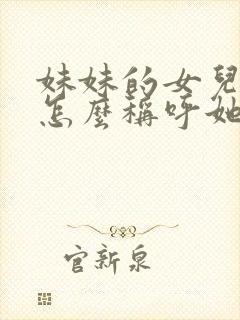 妹妹的女兒
怎麼稱呼她
官新泉